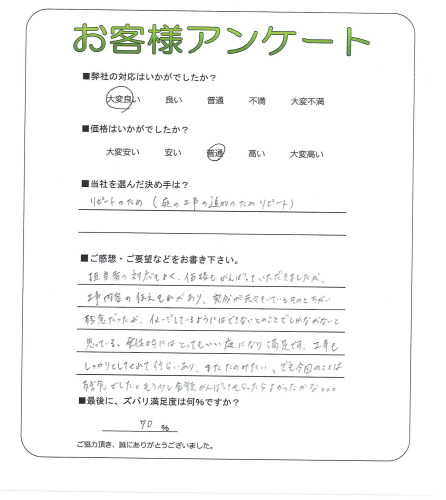 お客様アンケート
■弊社の対応はいかがでしたか?
大変良い 良い 普通 不満 大変不満
■価格はいかがでしたか?
大変安い 安い 普通 高い 大変高い
■当社を選んだ決め手は?
リピートのため(庭の工事の追加のためリピート)
■ご感想・ご要望などをお書き下さい。
担当者の対応もよく、価格もがんばっていただきましたが、
工事内容の伝えもれがあり、完成が元々きいているものとちがい
残念だったが、イメージしているようにはできないとのことでしかながないと
思っている。全体的にはとってもいい庭になり満足です。工事も
しっかりとしてくれて信らいあり、またたのみたい。でも今回のことは
残念でした。もう少し金額がんばってもらったらよかったかな。。。
■最後に、ズバリ満足度は何%ですか?
90 %
ご協力頂き、誠にありがとうございました。